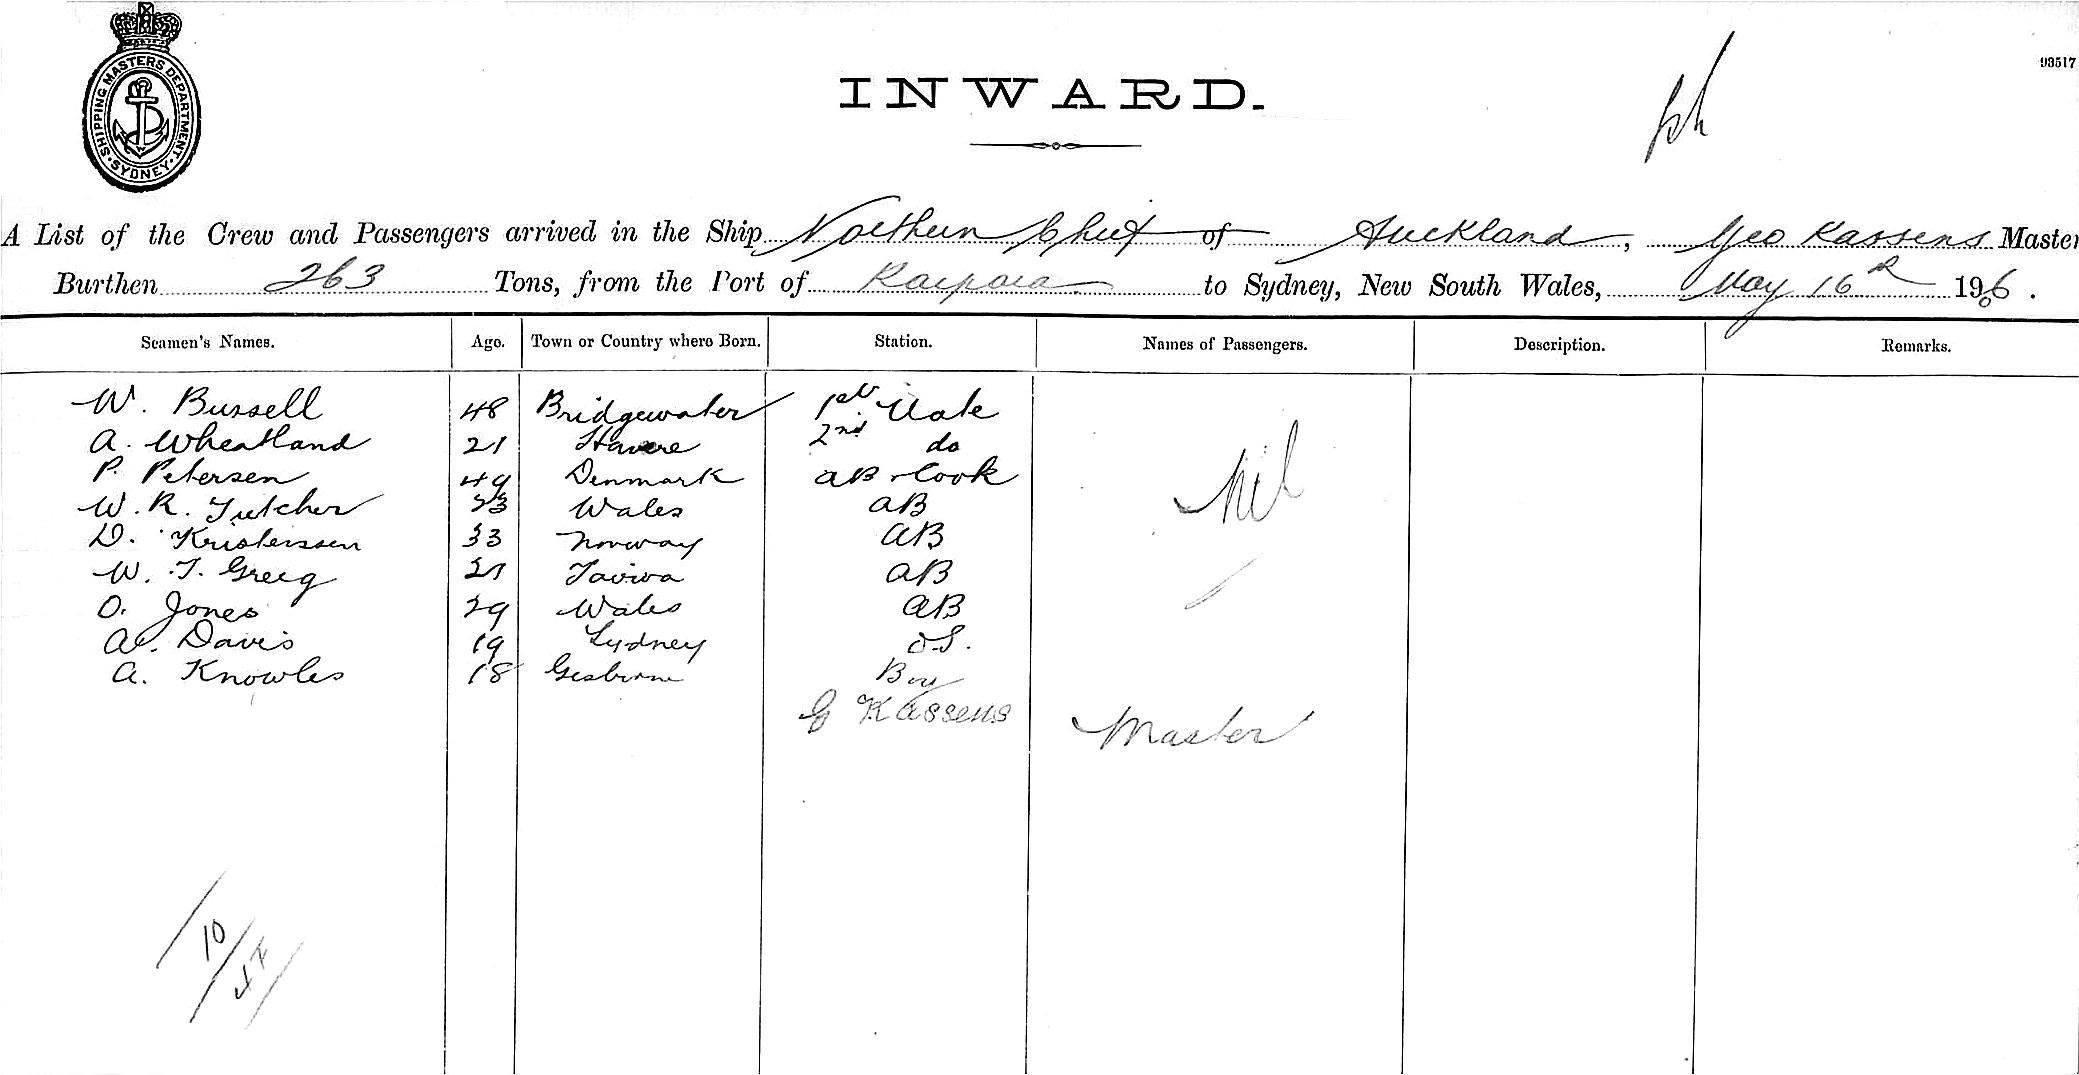 SHIPPING MASTERS DEPARTMENT. SYDNEY
93517
INWARD.
A List of the Crew and Passengers arrived in the Ship Northern Chief of Auckland, Geo Kassens Master
Burthen 263 Tons, from the Port of Kaipara to Sydney, New South Wales, May 16th 1906.
Seamen's Names. Age. Town or Country where Born. Station. Names of Passengers. Description. Remarks.
W. Bussell 48 Bridgewater 1st Mate
A. Wheatland 21 Havre 2nd do
P. Petersen 49 Denmark AB & Cook
Nil
W. R. Tutcher 23 Wales AB
D. Kristenssen 33 Norway AB
W. T. Greig 21 AB
O. Jones 29 Wales AB
A. Davis 19 Sydney OS.
A. Knowles 18 Gisborne Boy
G Kassens Master
10